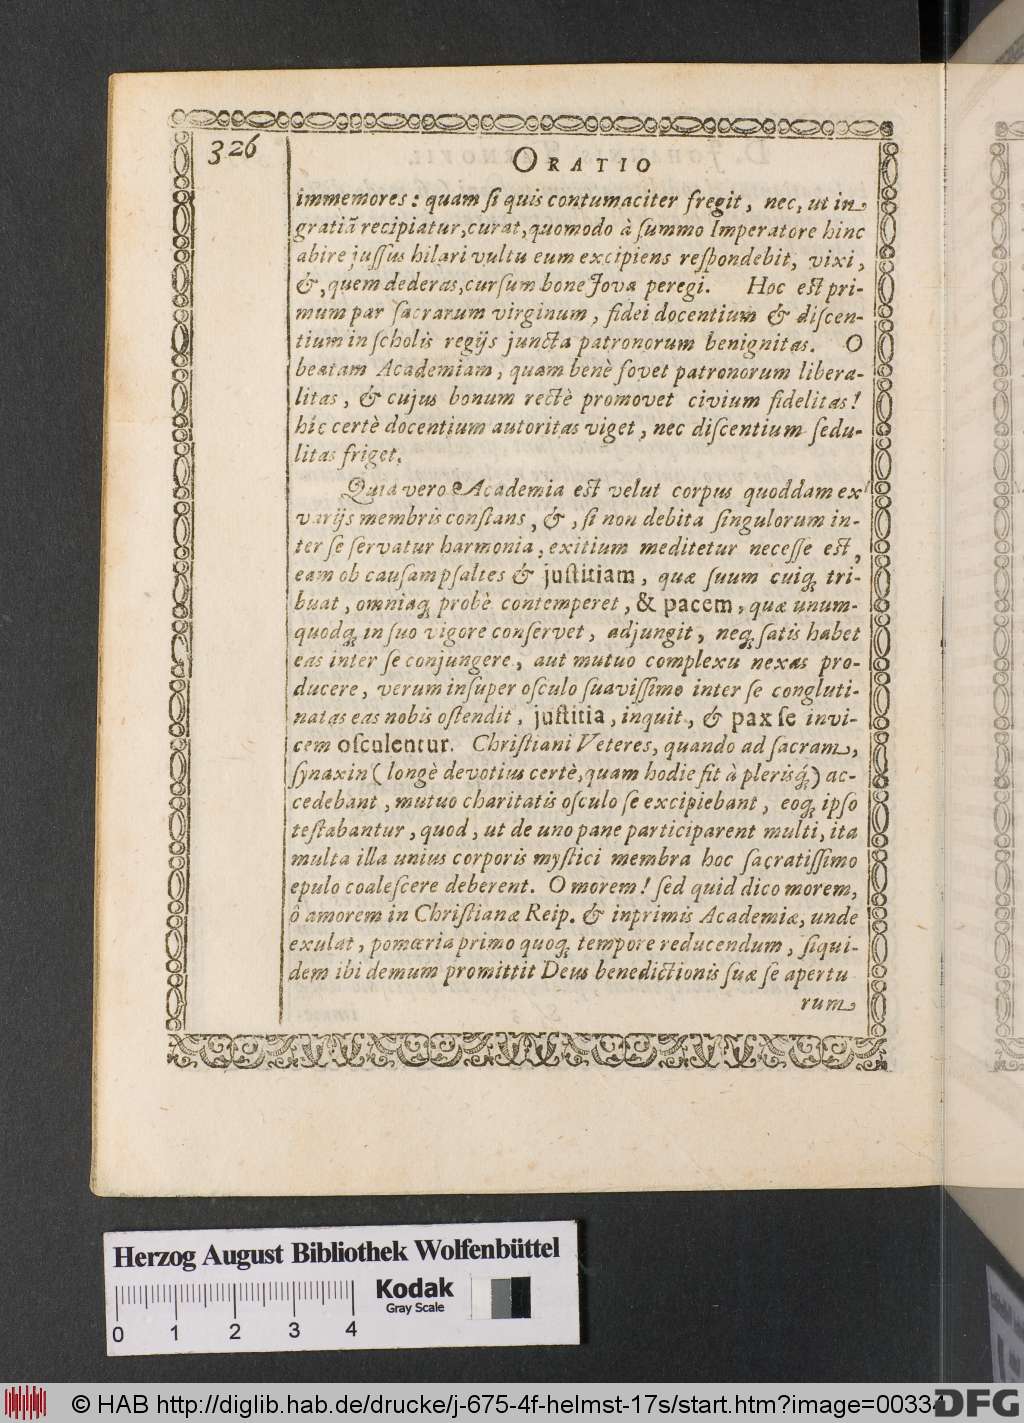 326
ORATIO
immemores: quam ſi quis contumaciter fregit, nec, ut in
gratiã recipiatur, curat, quomodo à ſummo Imperatore hinc
abire juſſus hilari vultu eum excipiens reſpondebit, vixi,
&, quem dederas, curſum bone Jova peregi. Hoc eſt pri-
mum par ſacrarum virginum, fidei docentium & diſcen-
tium in ſcholis regijs juncta patronorum benignitas. O
beatam Academiam, quam benè fovet patronorum libera-
litas, & cujus bonum rectè promovet civium fidelitas!
hîc certè docentium autoritas viget, nec diſcentium ſedu-
litas friget.
Quia vero Academia eſt velut corpus quoddam ex
varijs membris conſtans, &, ſi non debita ſingulorum in-
ter ſe ſervatur harmonia, exitium meditetur neceſſe eſt,
eam ob cauſam pſaltes & juſtitiam, quæ ſuum cuiq; tri-
buat, omniaq; probè contemperet, & pacem, quæ unum-
quodq; in ſuo vigore conſervet, adjungit, neq; ſatis habet
eas inter ſe conjungere, aut mutuo complexu nexas pro-
ducere, verum inſuper oſculo ſuaviſſimo inter ſe congluti-
natas eas nobis oſtendit, juſtitia, inquit, & pax ſe invi-
cem oſculentur. Chriſtiani Veteres, quando ad ſacram,
ſynaxin (longè devotius certè, quam hodie fit à plerisq́;) ac-
cedebant, mutuo charitatis oſculo ſe excipiebant, eoq; ipſo
teſtabantur, quod, ut de uno pane participarent multi, ita
multa illa unius corporis myſtici membra hoc ſacratiſſimo
epulo coaleſcere deberent. O morem! ſed quid dico morem,
ô amorem in Chriſtianæ Reip. & inprimis Academiæ, unde
exulat, pomœria primo quoq; tempore reducendum, ſiqui-
dem ibi demum promittit Deus benedictionis ſuæ ſe apertu
rum
Herzog August Bibliothek Wolfenbüttel
Kodak
Gray Scale
0 1 2 3 4
© HAB http://diglib.hab.de/drucke/j-675-4f-helmst-17s/start.htm?image=00334
DFG